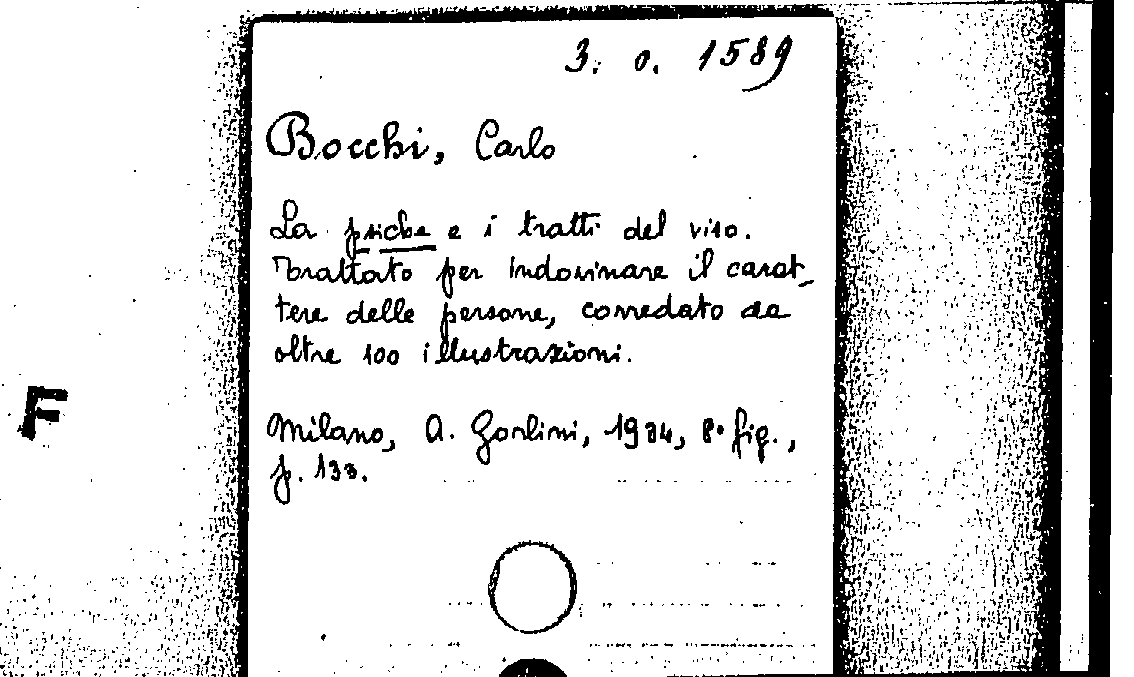 3. O. 1589
Bocchi, Carlo
La psiche e i tratti del viso.
Trattato per indovinare il carat-
tere delle persone, corredato da
oltre 100 illustrazioni.
F
Milano, A. Gorlini, 1934, 8° fig.,
p. 133.